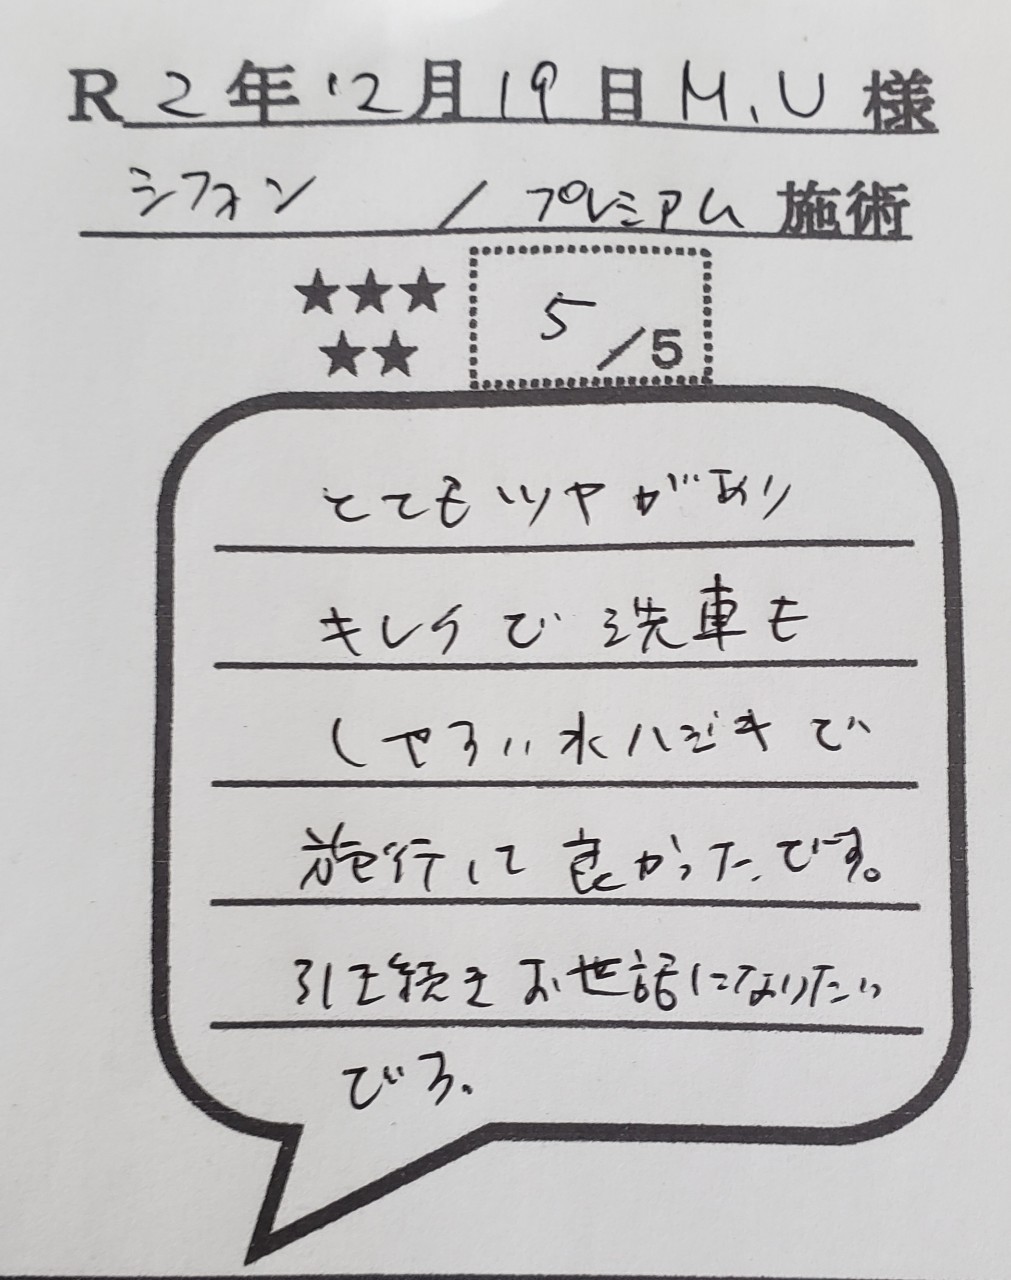 R2年12月19日 M.U様
シフォン / プレミアム 施術
★★★ 5/5
★★
とてもツヤがあり
キレイで洗車も
しやすい水ハジキで
施行して良かったです。
引き続きお世話になりたい
です。